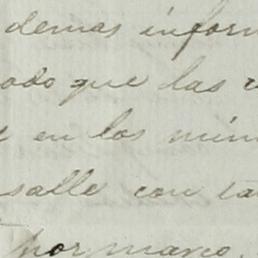 demas infor
ado que las
en los min
salle con ta
por marco.